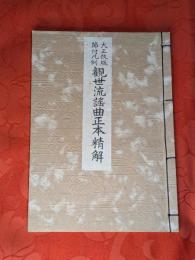 大正改版
節付凡例
觀世流謠曲正本精解